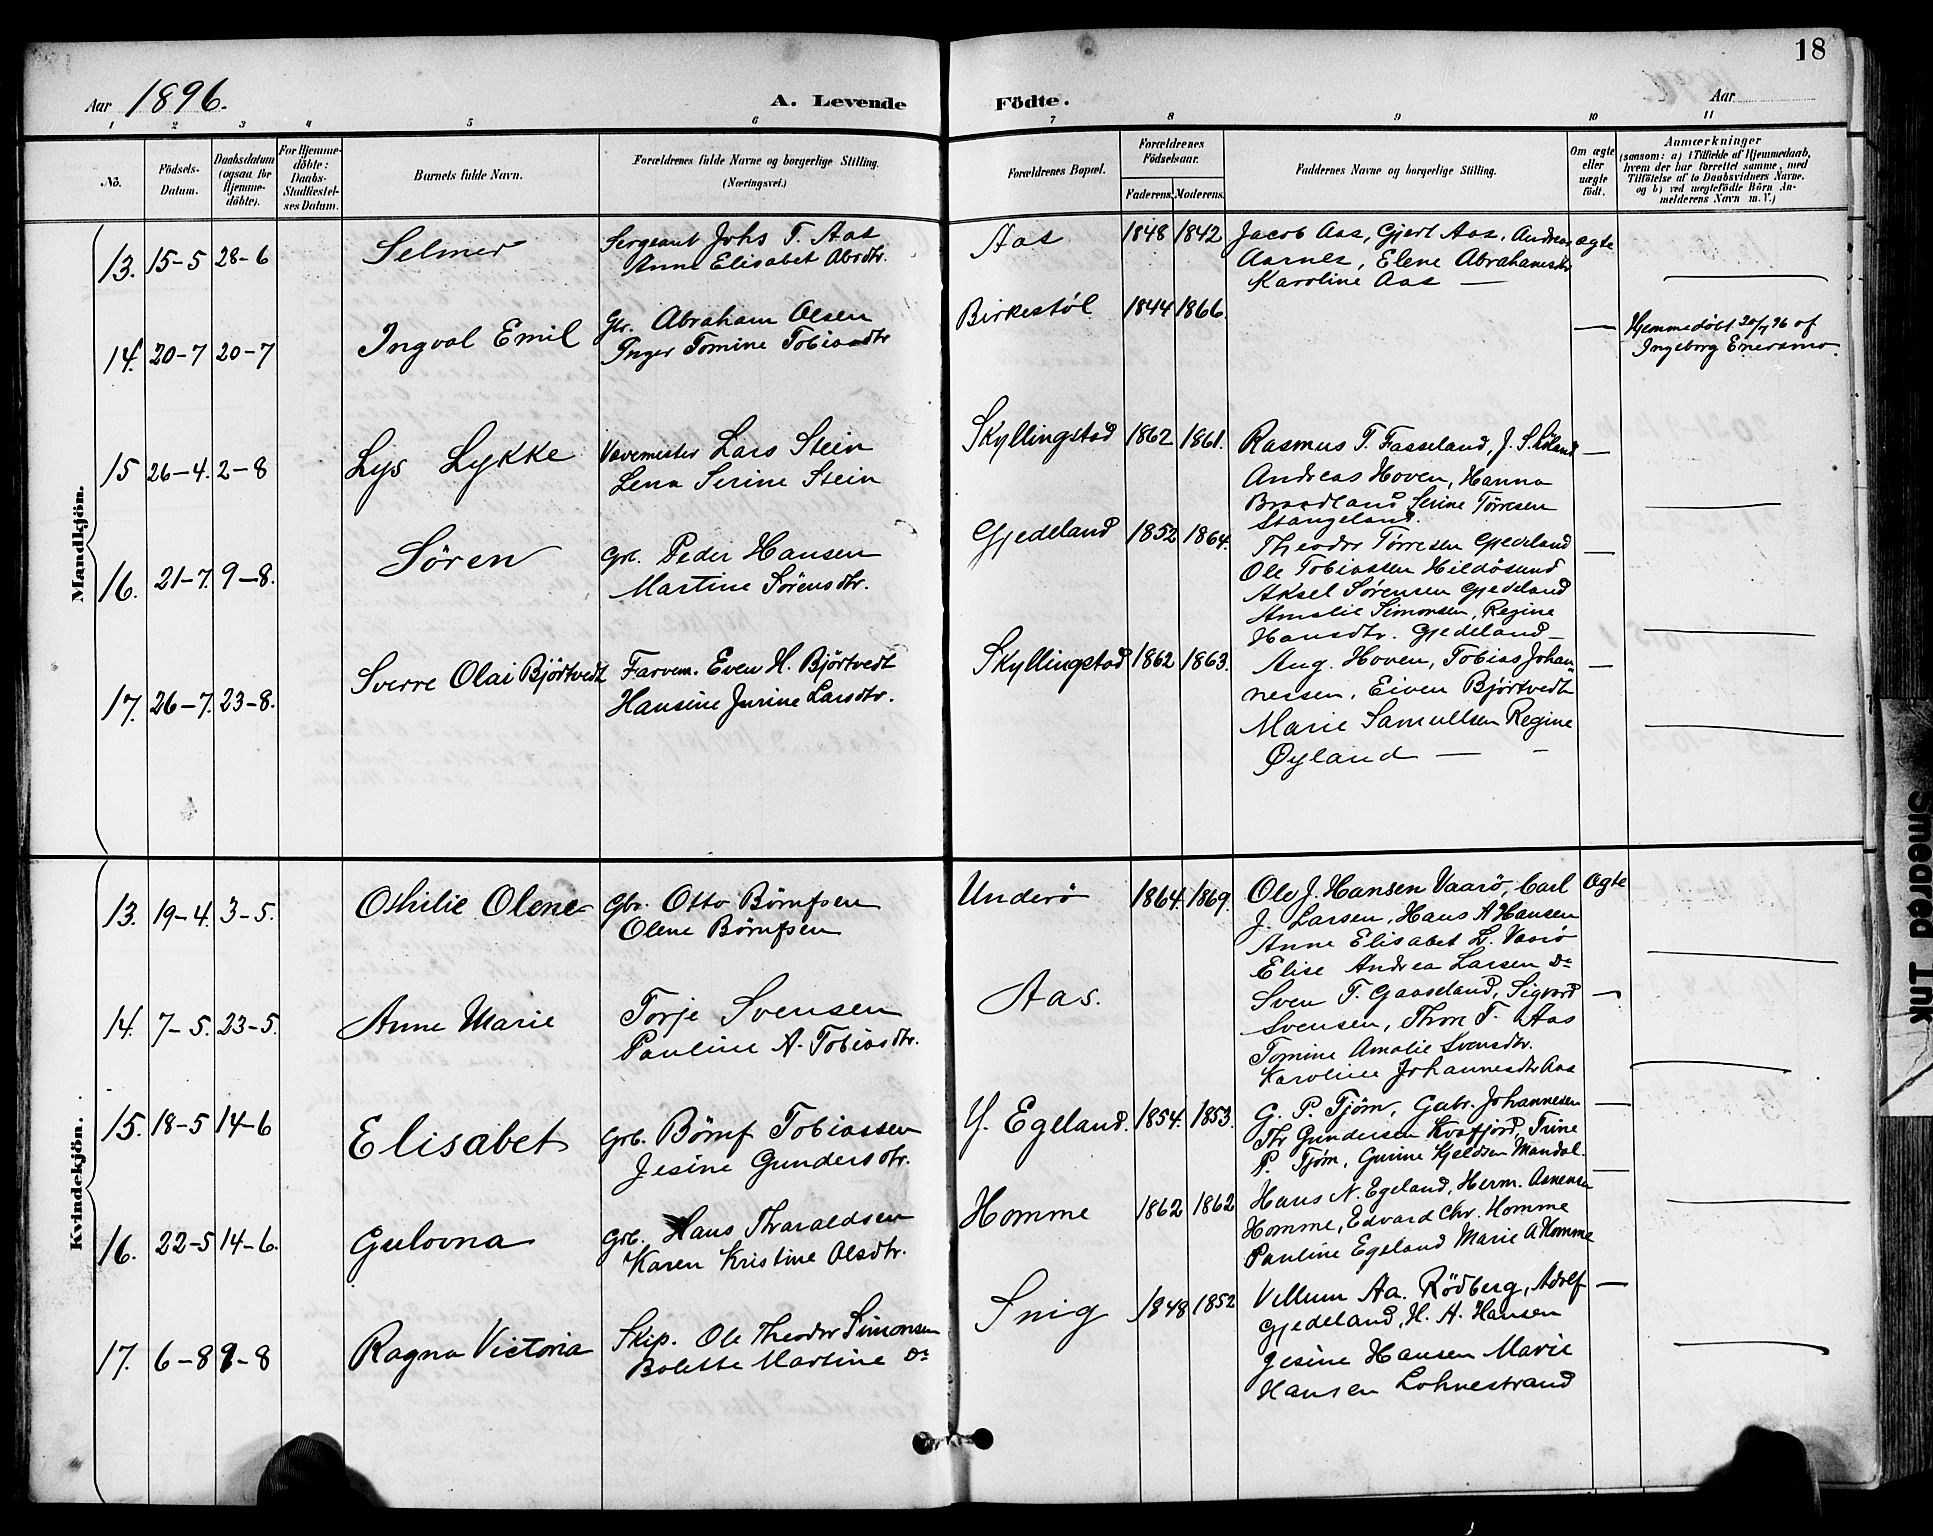 18
Aar 1896.
A. Levende Födte.
Aar
1 2 3 4 5 6 7 8 9 10 11
No.
Födsels-Datum.
Daabsdatum (ogsaa for Hjemme-döbte).
For Hjemme-döbte: Daabs-Stadfæstel-ses Datum.
Barnets fulde Navn.
Forældrenes fulde Navne og borgerlige Stilling. (Næringsvei.)
Forældrenes Bopæl.
Forældrenes Födselsaar.
Faderens. Moderens.
Faddernes Navne og borgerlige Stilling.
Om ægte eller uægte födt.
Anmærkninger (saasom: a) i Tilfælde af Hjemmedaab, hvem der har forrettet samme, med Tilföielse af to Daabsvidners Navne, og b) ved uægtefödte Börn An-melderens Navn m. V.)
Mandkjön.
13. 15-5 28-6 Selmer
Sergeant Johs T. Aas
Anne Elisabet Absdtr.
Aas 1848 1842
Jacob Aas, Gjert Aas, Andreas
Aarnes, Elene Abrahamsdtr
Karoline Aas —
ægte
14. 20-7 20-7 Ingval Emil
Gbr. Abraham Olsen
Inger Tomine Tobiasdtr
Birkestøl 1844 1866.
—
Hjemmedöbt 20/7 96 af
Ingeborg Enersmo.
15 26-4. 2-8 Lys Lykke
Vævemester Lars Stein
Lena Serine Stein
Skyllingstad 1862 1861.
Rasmus T. Fasseland, J. S. Ikland
Andreas Hoven, Hanna
Braadland Serine Tørresen
Stangeland.
—
16. 21-7. 9-8. Sören
Grb. Peder Hansen
Martine Sørensdtr.
Gjedeland 1852 1864.
Theodor Tørresen Gjedeland
Ole Tobiassen Hildøsund
Aksel Sørensen Gjedeland
Amalie Simonsen, Regine
Hansdtr. Gjedeland —
—
17. 26-7. 23-8. Sverre Olai Björtvedt
Farvem. Even H. Björtvedt
Hansine Jurine Larsdtr.
Skyllingstad 1862 1863.
Aug. Hoven, Tobias Johan-
nessen, Eiven Björtvedt
Marie Samuelsen Regine
Øyland — —
—
Kvindekjön.
13. 19-4. 3-5. Othilie Olene
Gbr. Otto Börufsen
Olene Börufsen
Underö 1864. 1869.
Ole J. Hansen Vaarö, Carl
J. Larsen, Hans A Hansen
Anne Elisabet L. Vaarö
Elise Andrea Larsen Do
Ægte
14. 7-5. 23-5. Anne Marie
Torje Svensen
Pauline A. Tobiasdtr.
Aas.
Sven T. Gaaseland, Sigvard
Svensen, Thom T. Aas
Tomine Amalie Svensdtr.
Karoline Johannesdtr Aas
—
15. 18-5 14-6 Elisabet
Grb. Böruf Tobiassen
Jesine Gundersdtr.
Y. Egeland. 1854. 1853.
G. P. Tjöm, Gabr. Johannesen
Thr Gundersen Kvafjord, Trine
P. Tjöm, Gurine Kjeldsen Mandal.
—
16. 22-5 14-6. Gulovna
Grb. Hans Tharaldsen
Karen Kristine Olsdtr.
Homme 1862 1862
Hans N. Egeland, Herm. Asnensen
Homme, Edvard Chr. Homme
Pauline Egeland Marie A Homme
—
17. 6-8 9-8 Ragna Victoria
Skip. Ole Theodor Simonsen
Bolette Martine Do
Snig 1848 1852
Vellum Aa. Rödberg, Adolf
Gjedeland, H. A. Hansen
Jesine Hansen Marie
Hansen Lohnestrand
—
Smeared Ink